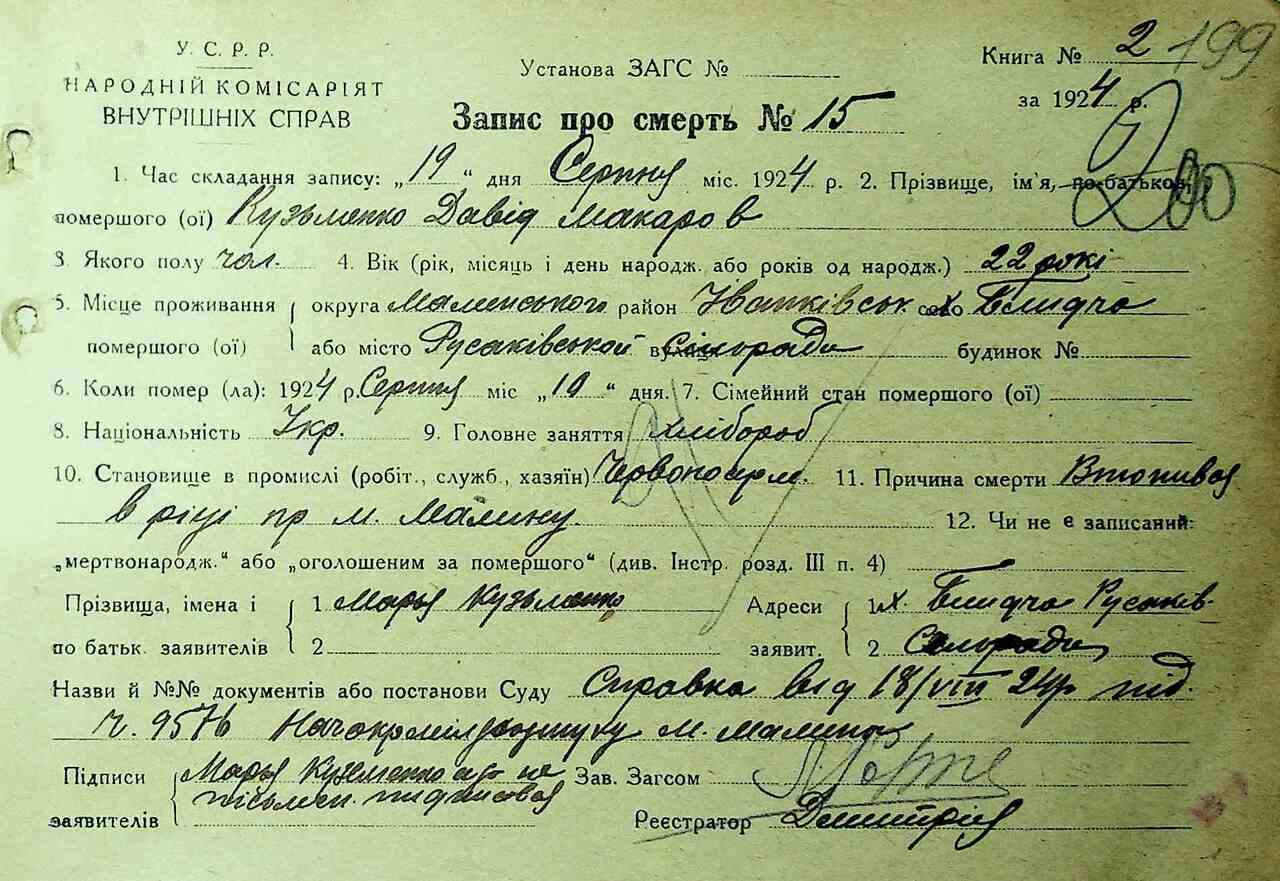 У. С. Р. Р.
НАРОДНІЙ КОМІСАРІЯТ
ВНУТРІШНІХ СПРАВ
Установа ЗАГС №
Книга № 2 199
за 1924 р.
200
Запис про смерть № 15
1. Час складання запису: „19“ дня Серпня міс. 1924 р. 2. Прізвище, ім'я, по-батькові
помершого (ої) Кузьменко Давід Макаров
3. Якого полу чол. 4. Вік (рік, місяць і день народж. або років од народж.) 22 рокі
5. Місце проживання помершого (ої) округа Малинського район Іванківськ село х. Блидча
або місто Русаківської вулиця сільради будинок №
6. Коли помер (ла): 1924 р. Серпня міс „10“ дня. 7. Сімейний стан помершого (ої)
8. Національність Укр. 9. Головне заняття хлібороб
10. Становище в промислі (робіт., служб., хазяїн) Червоноарм. 11. Причина смерти Втопився
в ріці пр м. Малину 12. Чи не є записаний:
„мертвонародж.“ або „оголошеним за помершого“ (див. Інстр. розд. III п. 4)
Прізвища, імена і по батьк. заявителів 1 Марья Кузьменко Адреси заявит. 1 х. Блидча Русаків-
2 2 Сільради
Назви й №№ документів або постанови Суду Справка від 18/VIII 24р під.
ч. 9576 м. Малина
Підписи заявителів Марья Кузьменко а не Зав. Загсом
письмен. підписався
Реєстратор